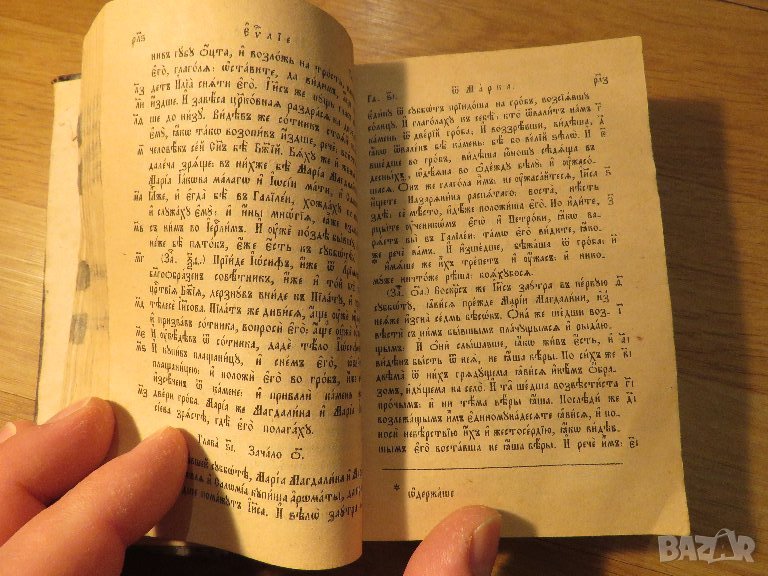 рл҃ѕ Єѵⷢ҇лїе
нивъ гꙋбꙋ ѻцта, и возложь на трость,
его, глаголѧ: ѡставите, да видимъ,
детъ Илїа снѧти его. Іи҃съ же пꙋщь гласъ
издше. И завѣса церковнаѧ раздрасѧ на два
ше до низꙋ. Видѣвъ же сотникъ стоѧй
емꙋ, ꙗкѡ такѡ возопивъ издше, рече:
человѣкъ сей Сн҃ъ бѣ Бж҃їй. Бѧхꙋ же и
далеча зрѧще: въ нихже бѣ Марїа Магдали
Марїа Іакѡва малагѡ и Іѡсїи мати, и
Іаже, и егда бѣ въ Галїлеи, хождахꙋ
и слꙋжахꙋ емꙋ: и ины многїѧ, ꙗже
съ нимъ во Іерⷭ҇лимъ. И ꙋже поздѣ бывшꙋ
понеже бѣ пѧтокъ, еже есть къ сꙋббѡтѣ
мг (За҃. ѯ҃д.) Прїиде Іѡсифъ, иже ѿ
благообразенъ совѣтникъ, иже и той
црⷭ҇твїѧ Бж҃їѧ, дерзнꙋвъ вниде къ Пїлатꙋ,
тѣлесе Іи҃сова. Пїлатъ же дивисѧ, аще ꙋже
и призвавъ сотника, вопроси его: аще
И ꙋвѣдѣвъ ѿ сотника, даде тѣло Іѡсиф
И кꙋпивъ плащаницꙋ, и снемъ его,
плащаницею: и положи его во гробъ,
изсѣченъ ѿ камене: и привали камень
двери гроба. Марїа же Магдалина и Марїа
Іѡсїева зрѧстѣ, гдѣ его полагахꙋ.
Глава ѕ҃і. Зачало ѻ҃.
шей сꙋббѡтѣ, Марїа Магдалина и
и Саломїа кꙋпиша арѡматы, да
помажꙋтъ Іи҃са. И ѕѣлѡ заꙋтра
Гл҃а. ѕ҃і. Ѿ Марка. рл҃з
единꙋ ѿ сꙋббѡтъ прїидоша на гробъ, возсїѧвшꙋ
солнцꙋ. И глаголахꙋ въ себѣ: кто ѿвалитъ намъ
камень ѿ дверїй гроба; И воззрѣвши, видѣша,
ꙗкѡ ѿваленъ бѣ камень: бѣ бо велїй ѕѣлѡ. И
вшедше во гробъ, видѣша юношꙋ сѣдѧща въ
десныхъ, ѡдѣѧна во ѻдеждꙋ бѣлꙋ: и ꙋжасо-
шасѧ. Онъ же глагола имъ: не ꙋжасайтесѧ, Іи҃са
ищете Назарѧнина распѧтаго: воста, нѣсть
здѣ: се мѣсто, идѣже положиша его. Но идите,
рцыте ꙋченикѡмъ егѡ и Петрови, ꙗкѡ ва-
рѧетъ вы въ Галїлеи: тамѡ его видите, ꙗко-
же рече вамъ. И изшедше, бѣжаша ѿ гроба: *
имѧше же ихъ трепетъ и ꙋжасъ: и нико-
мꙋже ничтоже рѣша: боѧхꙋбосѧ.
(За҃. ѻ҃а.) Воскр҃съ же Іи҃съ заꙋтра въ первꙋю
сꙋббѡтꙋ, ꙗвисѧ прежде Марїи Магдалини, из
неѧже изгна седмь бѣсѡвъ. Она же шедши воз-
вѣсти съ нимъ бывшымъ плачꙋщымсѧ и рыдаю-
щымъ. И они слышавше, ꙗкѡ живъ есть, и
видѣнъ бысть ѿ неѧ, не ꙗша вѣры. По сихъ же
двѣма ѿ нихъ грѧдꙋщема ꙗвисѧ инѣмъ ѻбра-
зомъ, идꙋщема на село. И та шедша возвѣстиста
прочымъ: и ни тѣма вѣры ꙗша. Послѣди же
возлежащымъ имъ единомꙋнадесѧте ꙗвисѧ, и по-
носи невѣрствїю ихъ и жестосердїю, ꙗкѡ видѣв-
шымъ его воставша не ꙗша вѣры. И рече имъ:
* ѡдержаше
BAZAR